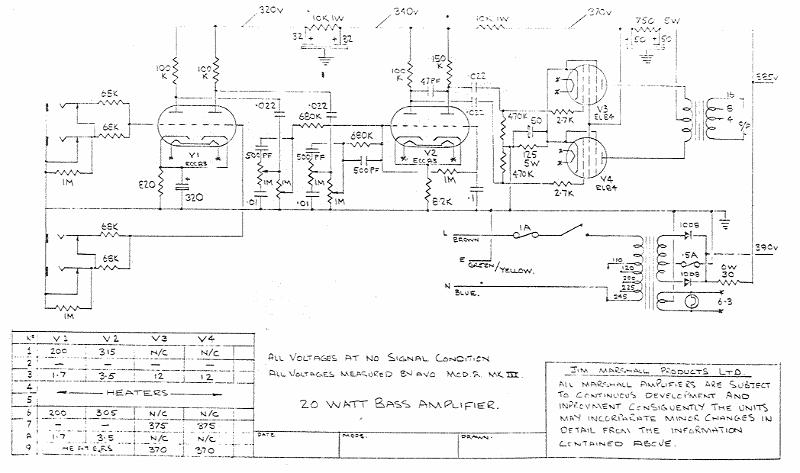 320V
10K 1W
340V
10K.1W
370V
750 5W
32
32
50
50
100
K
100
K
100
K
150
K
47PF
.022
.022
385V
68K
68K
.022
.022
680K
680K
470K
.50
2.7K
V3
EL84
16
8
4
O/P
V1
ECC83
V2
ECC83
125
5W
470K
V4
EL84
2.7K
500PF
500PF
500PF
1M
820
320
1M
1M
1M
1M
1M
8.2K
.1
.01
.01
68K
68K
1M
L
BROWN
1A
E
GREEN/YELLOW.
N
BLUE.
110
120
200
225
245
1008
.5A
1008
390V
OW
30
6-3
Kº V1 V2 V3 V4
1 200 315 N/C N/C
2 – – N/C N/C
3 1·7 3·5 12 12
4
5
HEATERS
6 200 305 N/C N/C
7 – – 375 375
8 1·7 3·5 N/C N/C
9 HEATERS 370 370
ALL VOLTAGES AT NO SIGNAL CONDITION
ALL VOLTAGES MEASURED BY AVO MOD.8. MK III.
20 WATT BASS AMPLIFIER.
DATE MODS. DRAWN.
JIM MARSHALL PRODUCTS LTD.
ALL MARSHALL AMPLIFIERS ARE SUBJECT
TO CONTINUOUS DEVELOPMENT AND
IMPROVMENT CONSIGUENTLY THE UNITS
MAY INCORPARATE MINOR CHANGES IN
DETAIL FROM THE INFORMATION
CONTAINED ABOVE.